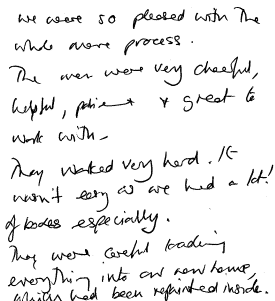 we were so pleased with the
whole move process.
The men were very cheerful,
helpful, patient & great to
work with.
They worked very hard. It
wasn't easy as we had a lot!
of books especially.
They were careful loading
everything into our new home,
which had been repainted inside.